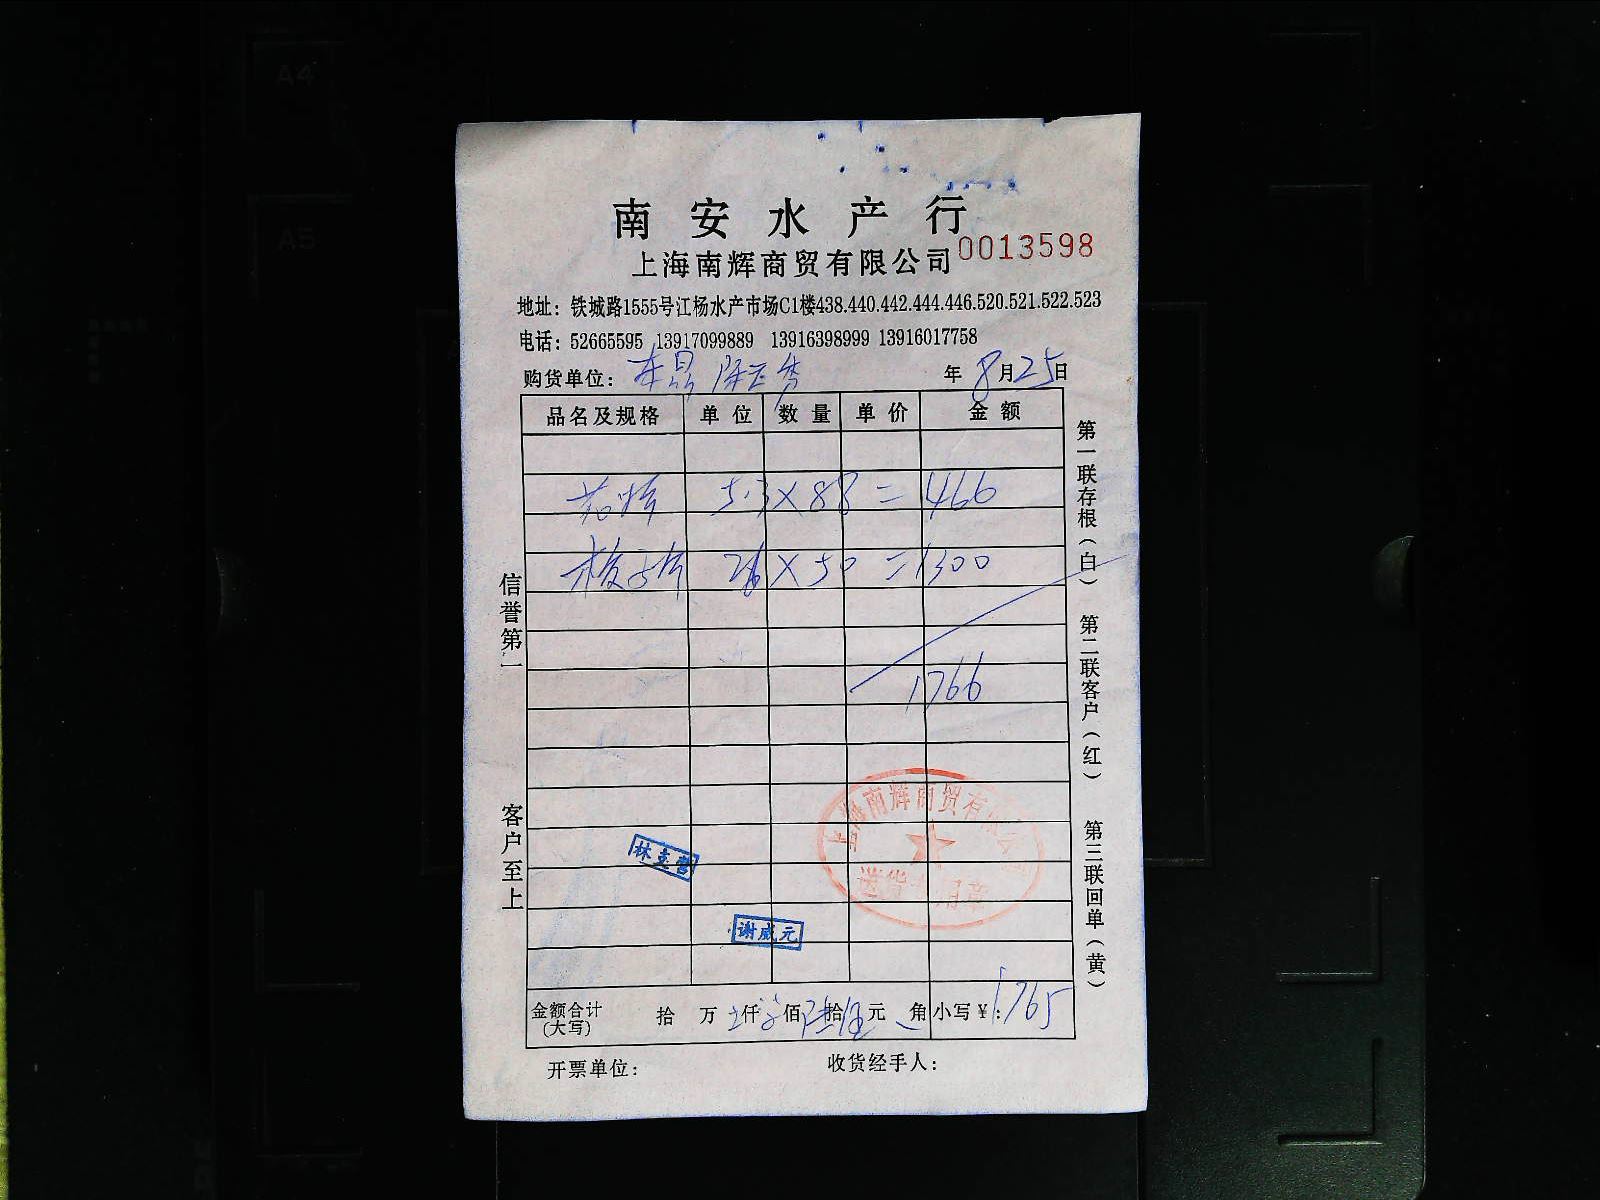 南安水产行
上海南辉商贸有限公司 0013598
地址：铁城路1555号江杨水产市场C1楼438.440.442.444.446.520.521.522.523
电话：52665595 13917099889 13916398999 13916017758
购货单位： 年 8月25日
品名及规格 单位 数量 单价 金额
5.3×88=466
26×50=1300
1766
上海南辉商贸有限公司
送货专用章
林克营
谢威元
金额合计（大写） 拾 万 仟 佰 拾 元 角 小写￥：1765
开票单位： 收货经手人：
信誉第一
客户至上
第一联存根（白） 第二联客户（红） 第三联回单（黄）
A4
A5